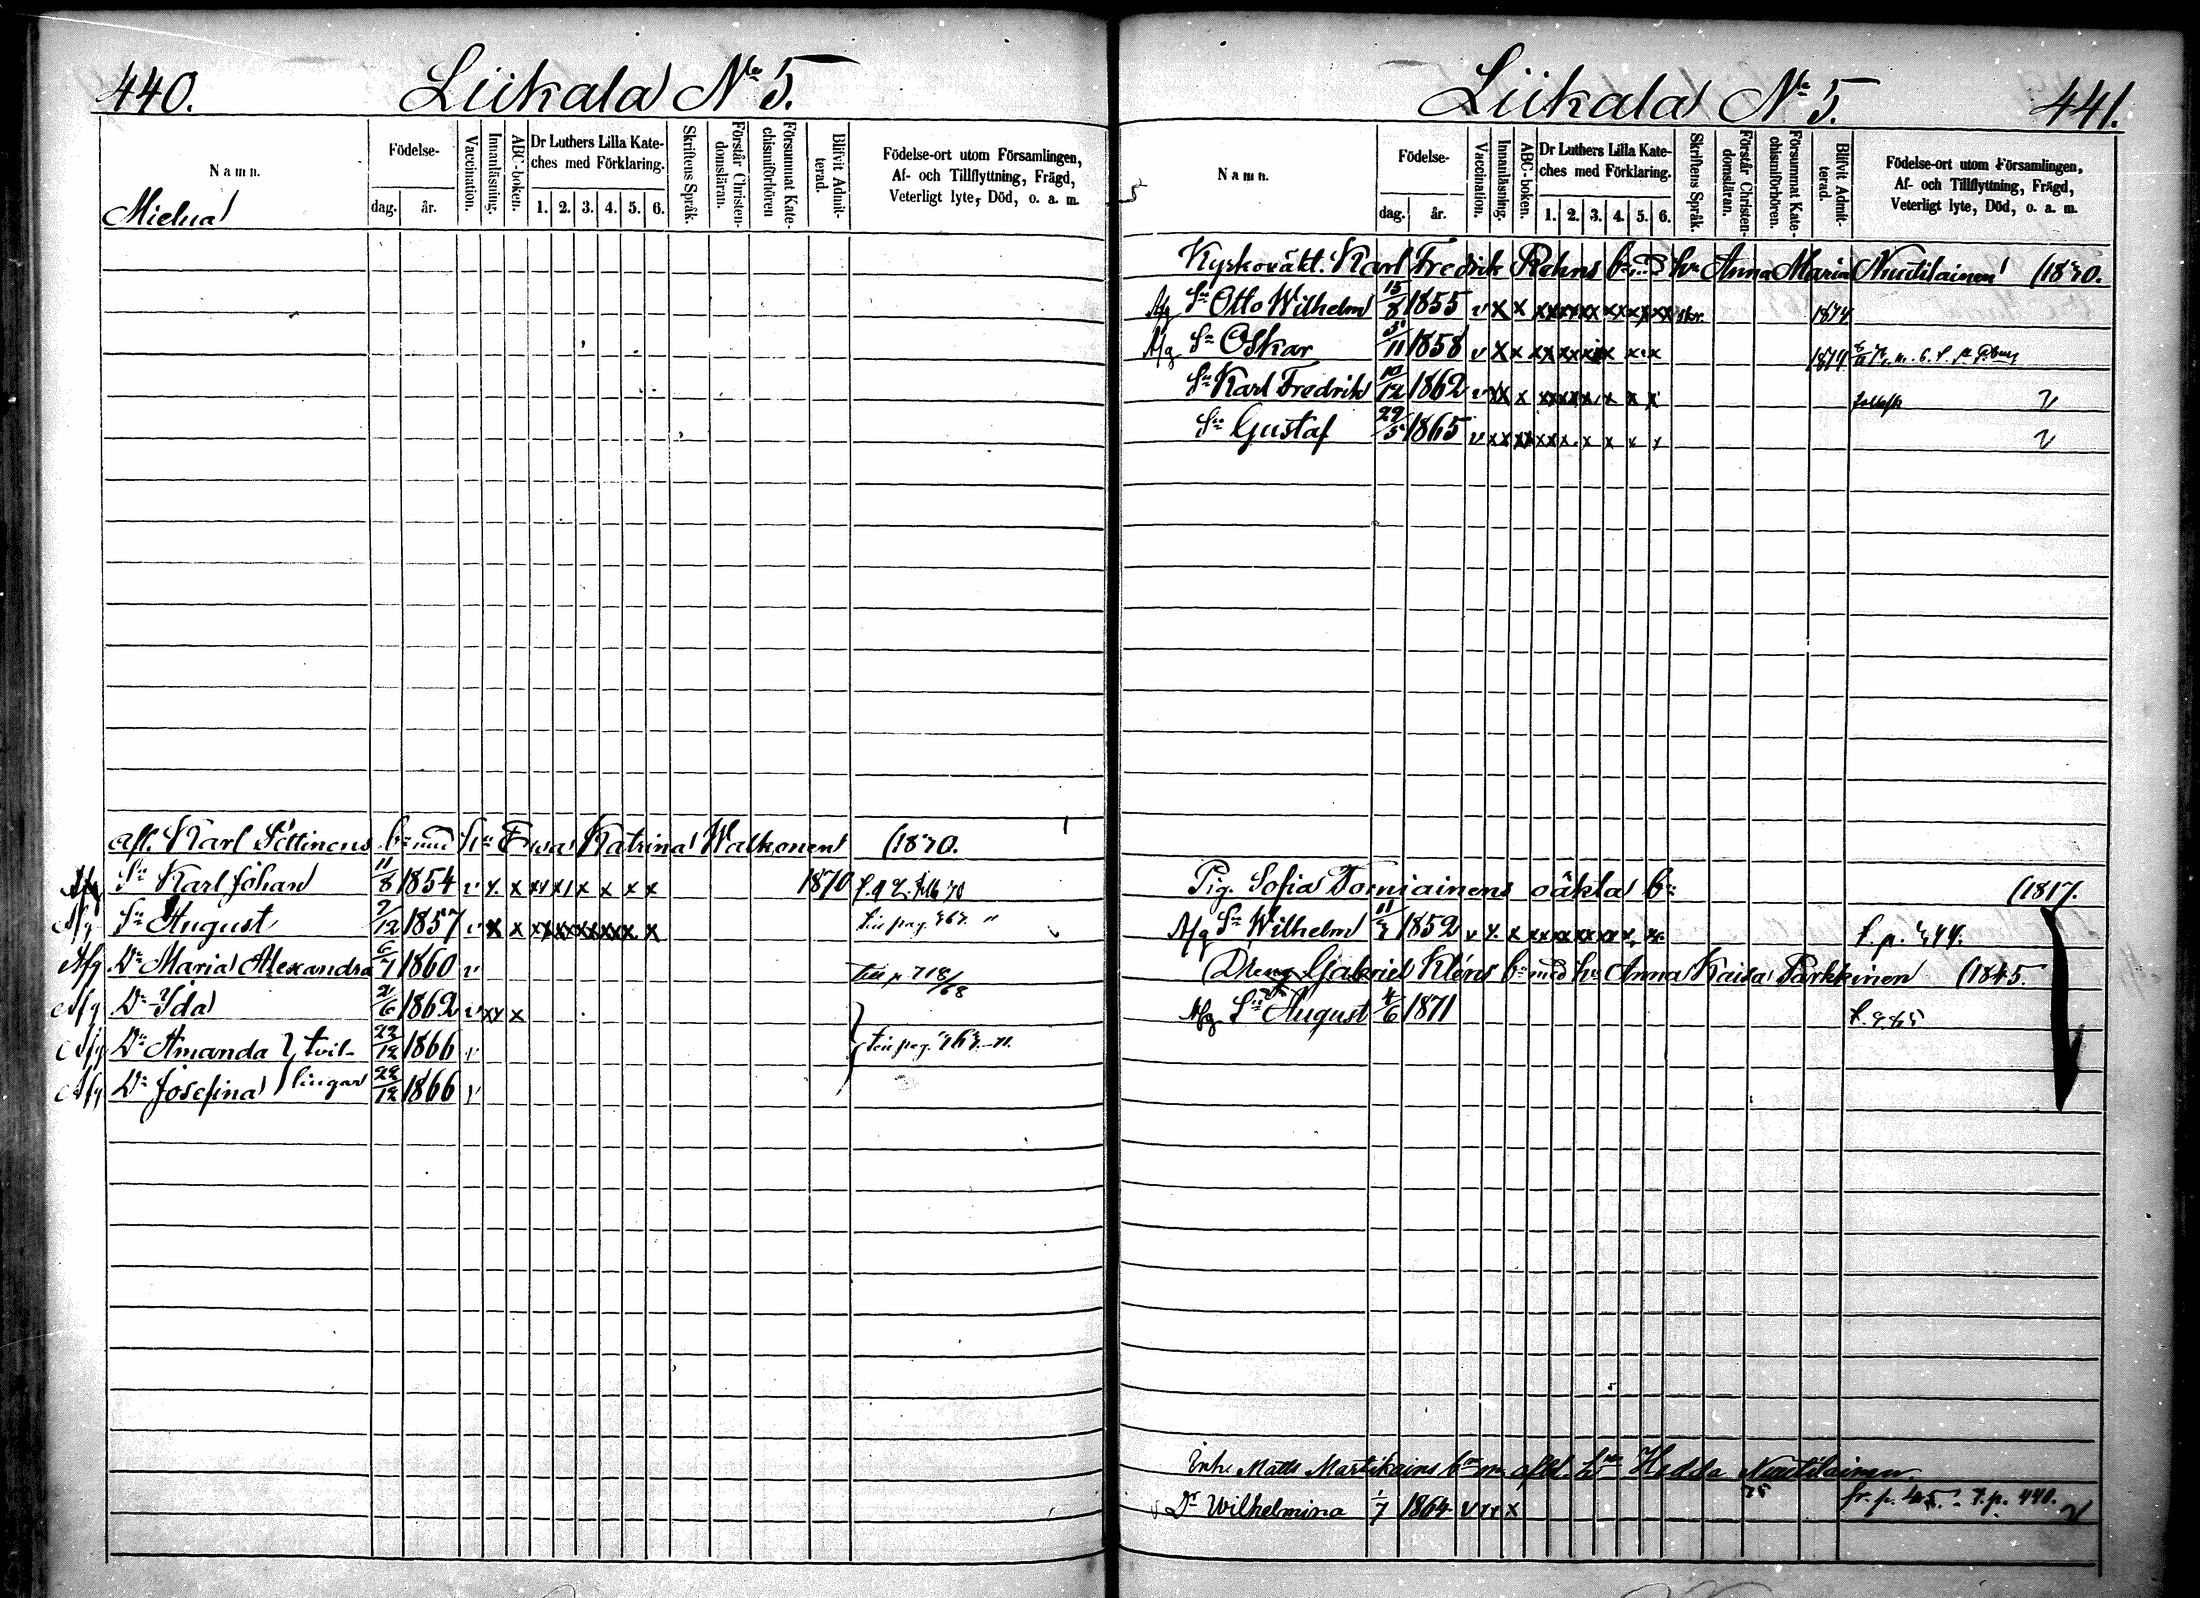 440. Liikala No 5.
Namn. Födelse- dag. år. Vaccination. Innanläsning. ABC-boken. Dr Luthers Lilla Kateches med Förklaring. 1. 2. 3. 4. 5. 6. Skriftens Språk. Förstår Christendomsläran. Försummat Katechismiförhören Blifvit Admitterad. Födelse-ort utom Församlingen, Af- och Tillflyttning, Frägd, Veterligt lyte, Död, o. a. m.
Mielua
afl. Karl Pöttinens bn med hu Ewa Katrina Walkonen (1870.
Afg Sn Karl Johan 11/8 1854 v x. x xx x x x x x 1870
Afg Sn August 7/12 1857 v x x xx xx xx xx x. x
Afg Dr Maria Alexandra 6/7 1860 v 718/68
Afg Dr Ida 2/6 1862 v xx x
Afg Dr Amanda } tvil- 22/12 1866 v
Afg Dr Josefina } lingar 22/12 1866 v
Liikala No 5. 441.
Namn. Födelse- dag. år. Vaccination. Innanläsning. ABC-boken. Dr Luthers Lilla Kateches med Förklaring. 1. 2. 3. 4. 5. 6. Skriftens Språk. Förstår Christendomsläran. Försummat Katechismiförhören. Blifvit Admitterad. Födelse-ort utom Församlingen, Af- och Tillflyttning, Frägd, Veterligt lyte, Död, o. a. m.
Kyrkovakt. Karl Fredrik Rehns bn med hu Anna Maria Nuutilainen (1870.
Afg Sn Otto Wilhelm 15/8 1855 v x x xx xx xx xx xx xx 1874
Afg Sn Oskar 11 1858 v x x xx xx x x x x 1879
Sn Karl Fredrik 10/12 1862 v xx x xx xx x x x x v
Sn Gustaf 29/5 1865 v xx xx xx x. x x x x v
Pig. Sofia Torniainens oäkta bn (1817.
Afg Sn Wilhelm 11 1852 v x. x xx xx xx xx x. x.
Dreng Gabriel Klöns bn med hu Anna Kaisa Parkkinen (1845.
Afg Sn August 4/6 1871
Enkl. Matts Martikains bn m. aflid. hu Hedda Nuutilainen.
Dr Wilhelmina 1/7 1864 v xx x t. p. 440. v